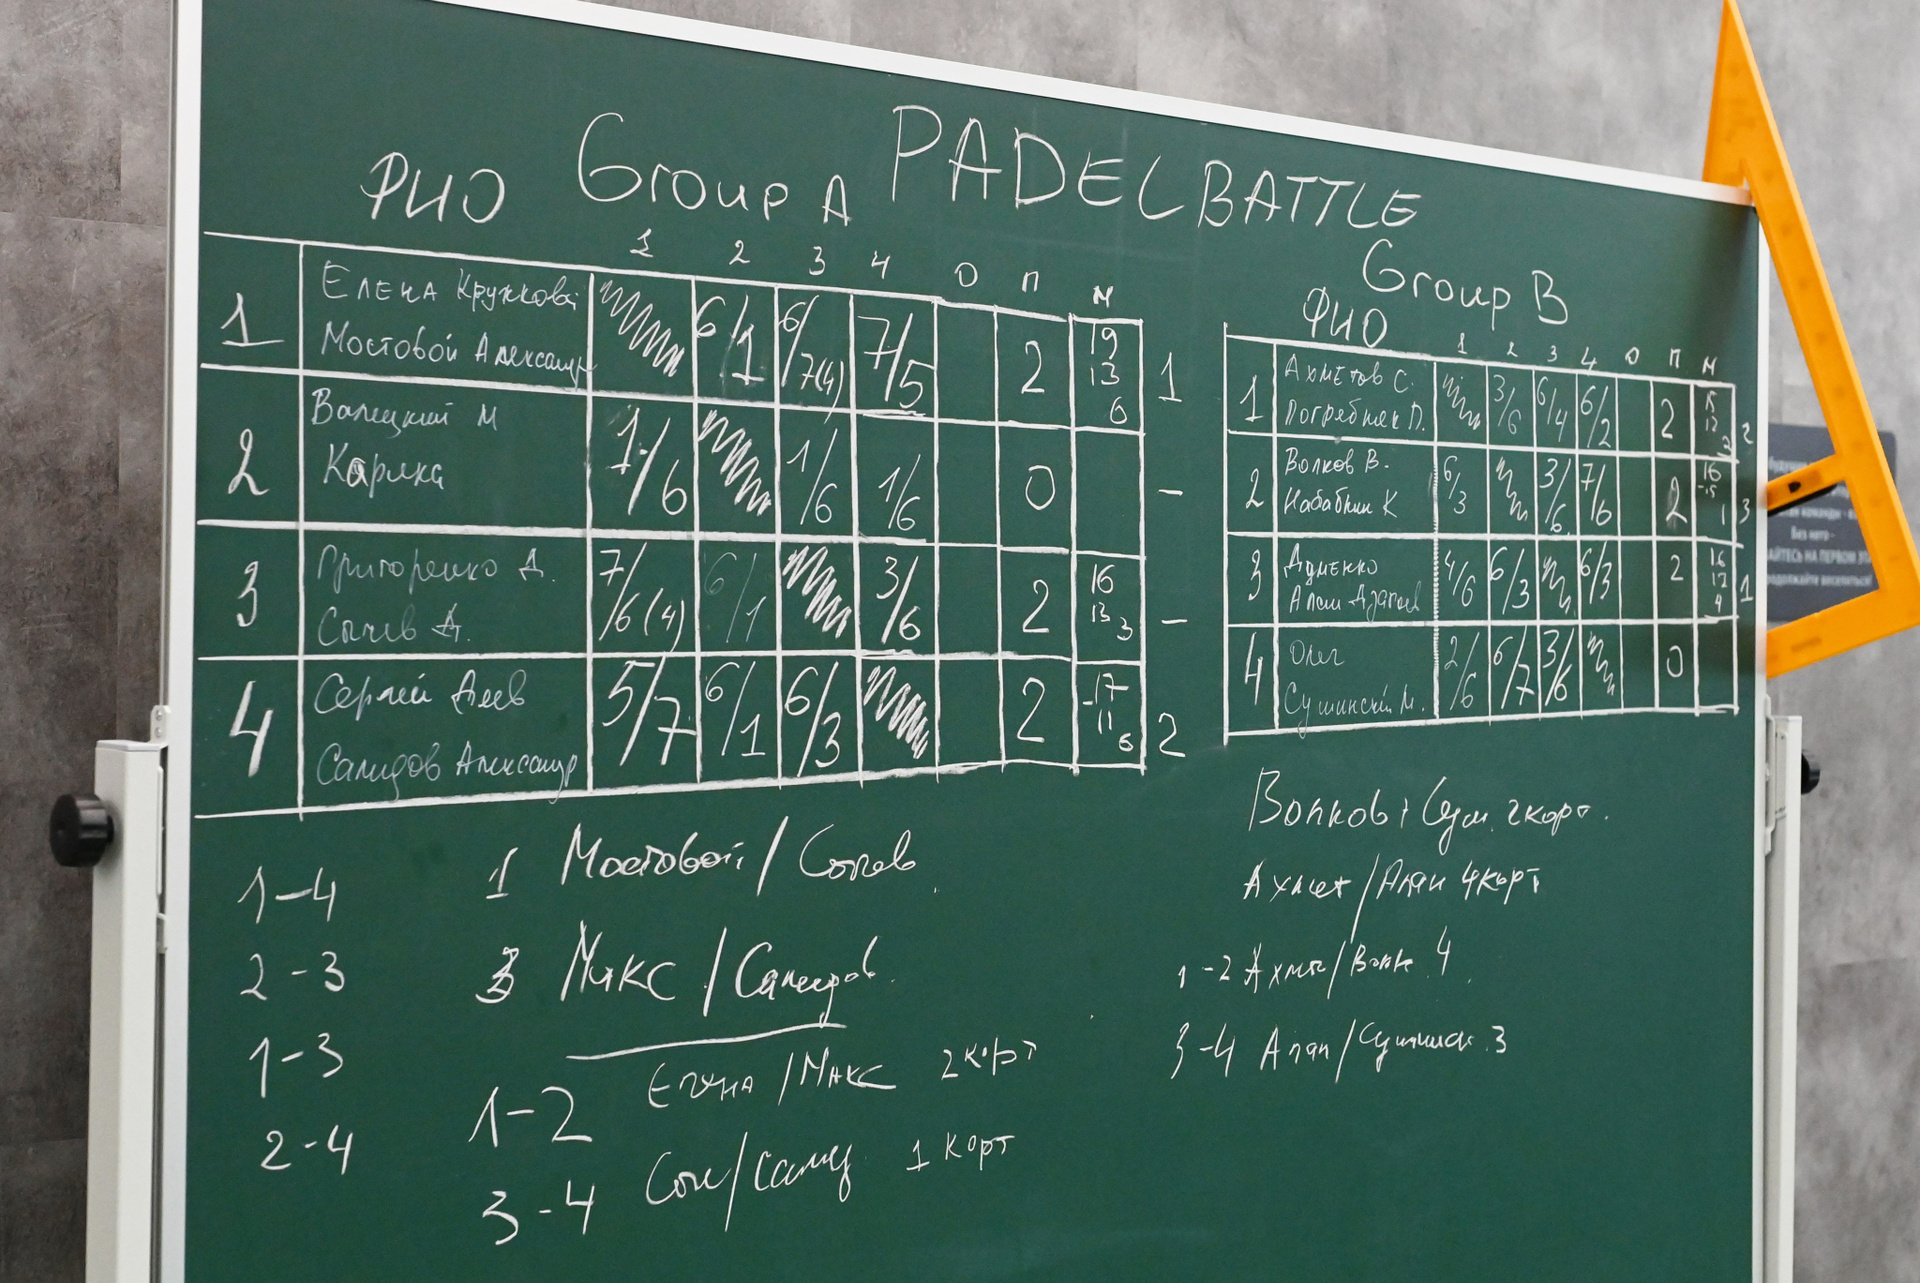 PADEL BATTLE
ФИО Group A
1 2 3 4 О П М
1 Елена Кружкова 6/1 6/7(4) 7/5 2 19 1
Мостовой Александр 13
6
2 Валецкий М 1/6 1/6 1/6 0 -
Карика
3 Григоренко Д. 7/6(4) 6/1 3/6 2 16 -
Сычев А. 13 3
4 Сергей Деев 5/7 6/1 6/3 2 -17 2
Салидов Александр 11
6
Group B
ФИО
1 2 3 4 О П М
1 Ахметов С. 3/6 6/4 6/2 2 15 2
Погребняк П. 12
3
2 Волков В. 6/3 3/6 7/6 2 16 3
Набабкин К -15
1
3 Думенко 4/6 6/3 6/3 2 16 1
Алан Дзагоев 12
4
4 Олег 2/6 6/7 3/6 0
Сушинский М.
1-4
2-3
1-3
2-4
1 Мостовой/Сычев
3 Макс/Салидов
1-2 Елена/Макс 2 корт
3-4 Соч/Салид 1 корт
Волков + Суш. 2 корт.
Ахмет/Алан 4 корт
1-2 Ахмт/Волк 4
3-4 Алан/Сушинск. 3